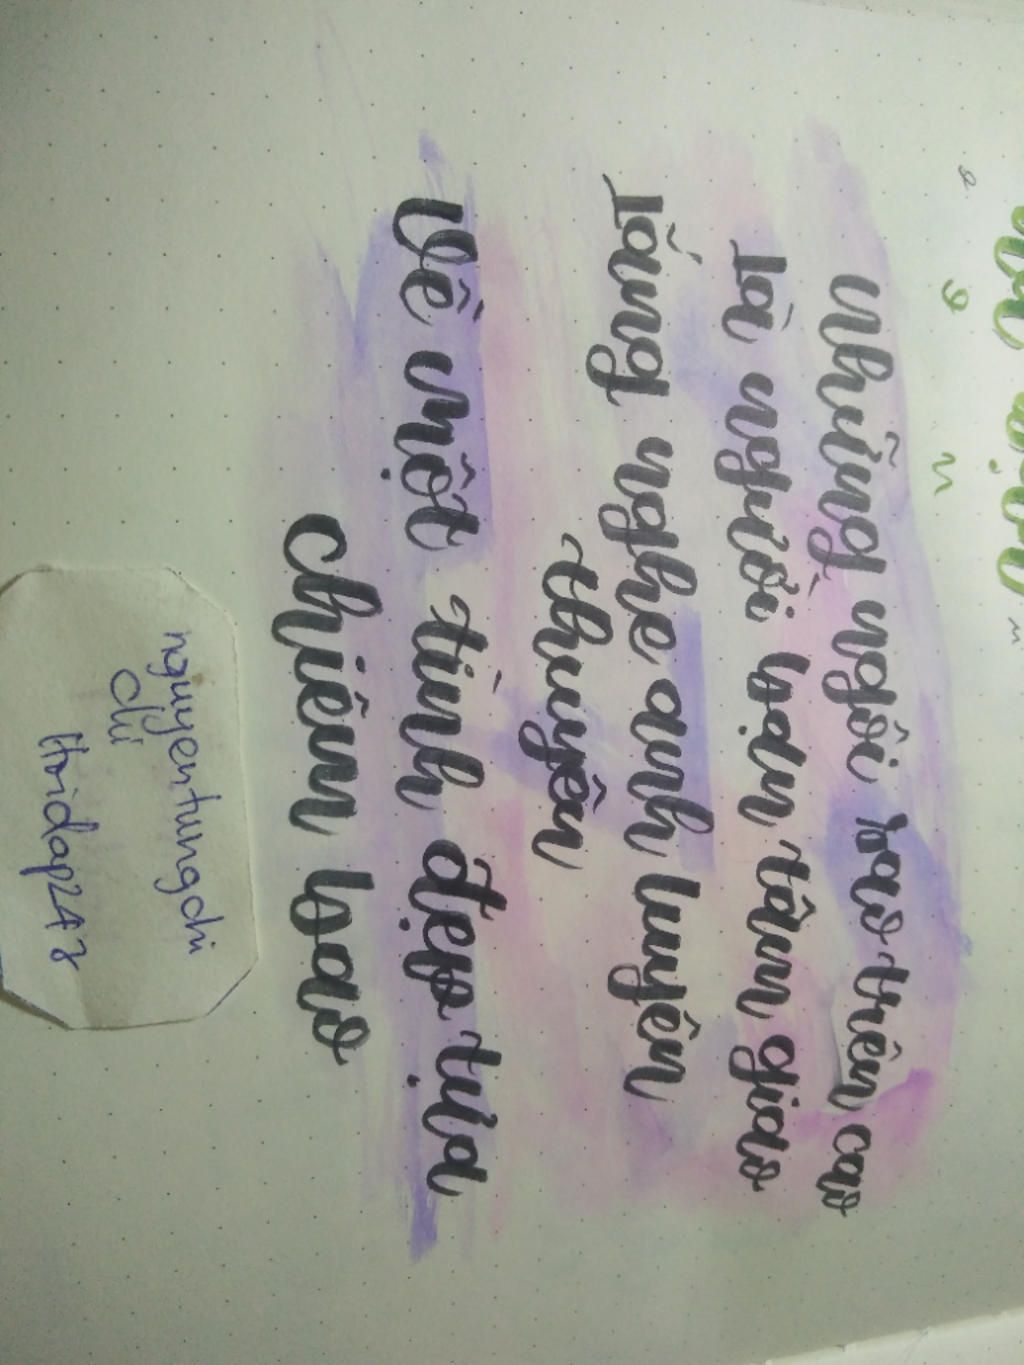 Những ngôi sao trên cao
Là người bạn tâm giao
Lắng nghe anh luyên
thuyên
Về một tình đẹp tựa
chiêm bao
nguyentungchi
Chi
Hoidap247